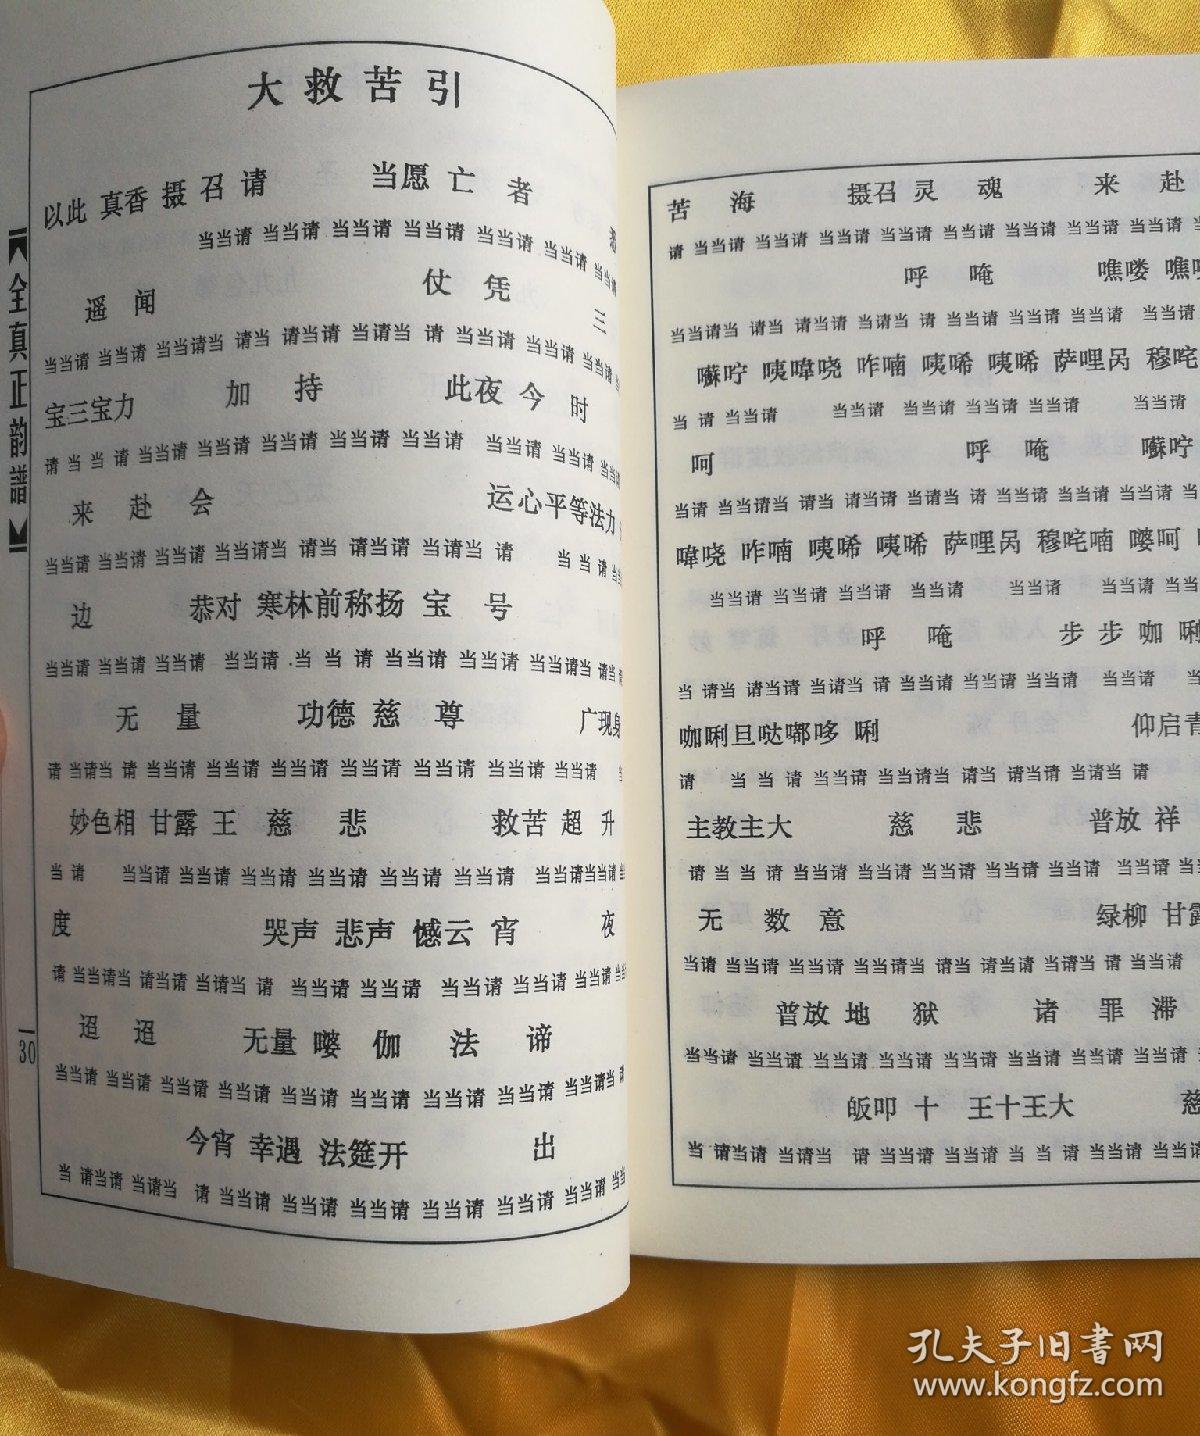 大救苦引
以此 真香 摄 召 请 当愿 亡 者
当当请 当当请 当当请 当当请 当当请 当当请 当当请
遥 闻 仗 凭 三
当当请 当当请 当当请当 请当 请当请 当请当 请 当当请 当当请 当当请
宝三宝力 加 持 此夜 今 时
请 当 当 请 当当请 当当请 当当请 当当请 当当请 当当请 当当请 当当请
来 赴 会 运心平等法力
当当请 当当请 当当请 当当请当 请当 请当请 当请当 请 当 当 请
边 恭对 寒林前称扬 宝 号
当当请 当当请 当当请 当当请 当 当 请 当当请 当当请 当当请当 请当
无 量 功德 慈 尊 广现身
请 当请当 请 当当请 当当请 当当请 当当请 当当请 当当请 当当请
妙色相 甘露 王 慈 悲 救苦 超 升
当 请 当当请 当当请 当当请 当当请 当当请 当当请 当当请当当请
度 哭声 悲声 憾云 宵 夜
请 当当请当 请当请 当请当 请 当当请 当当请 当当请 当当请 当当请
迢 迢 无量 嘤 伽 法 谛
当当请 当当请 当当请 当当请 当当请 当当请 当当请 当当请当
今宵 幸遇 法筵开 出
当 请当请 当请当 请 当当请 当当请 当当请 当当请 当当请 当当请
全真正韵譜
30
苦 海 摄召 灵 魂 来 赴
请 当当请 当当请 当当请 当当请 当当请 当当请 当当请 当当请
呼 唵
当当请当 请当 请当请 当请当 请 当当请 当当请 当当请 当当请
咦㖞哓 咋喃 咦唏 咦唏 萨哩呙 穆咤
当 请 当当请 当当请 当当请 当当请 当当请 当当请
呵 呼 唵
当请 当当请 当当请当 请当 请当请 当请当 请 当当请 当当请 当当请
咋喃 咦唏 咦唏 萨哩呙 穆咤喃 嘤呵
当当请 当当请 当当请 当当请 当当请 当当请 当当请
呼 唵 步 步 咖 唎
当 请当 请当请 当请当 请 当当请 当当请 当当请 当当请
咖唎旦哒嘟哆 唎 仰启青
请 当 当 请 当当请 当当请当 请当 请当请 当请当 请
主教主大 慈 悲 普放 祥
请 当 当 请 当当请 当当请 当当请 当当请 当当请 当当请
无 数 意 绿柳 甘露
当请 当当请 当当请 当当请当 请当 请当请 当请当 请 当当请
普放 地 狱 诸 罪 滞
当当请 当当请 当当请 当当请 当当请 当当请 当当请 当当请
皈叩 十 王十王大 慈
当 请当请 当请当 请 当当请 当当请 当 当 请 当当请 当当请
孔夫子旧书网
www.kongfz.com